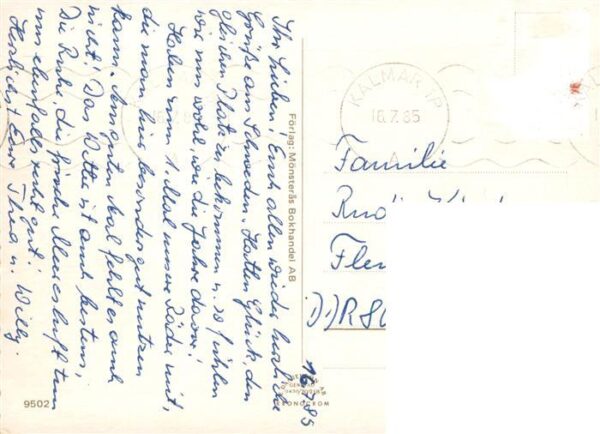 Ihr Lieben! Euch allen wieder herzliche
Grüße aus Schweden. Hatten Glück, den
gleichen Platz zu bekommen u. so fühlen
wir uns wohl, wie die Jahre davor!
Haben zum 1. Mal unsere Räder mit,
die man hier besonders gut nutzen
kann. Am guten Aal fehlt es auch
nicht. Das Wetter ist auch bestens,
Die Ruhe, die frische Meeresluft tun
uns ebenfalls recht gut!
Herzlichst Eure u. Willy.
16.7.85
Förlag: Mönsterås Bokhandel AB
KALMAR 1P
16.7.85
A
Familie
Rudi
DDR 80
9502